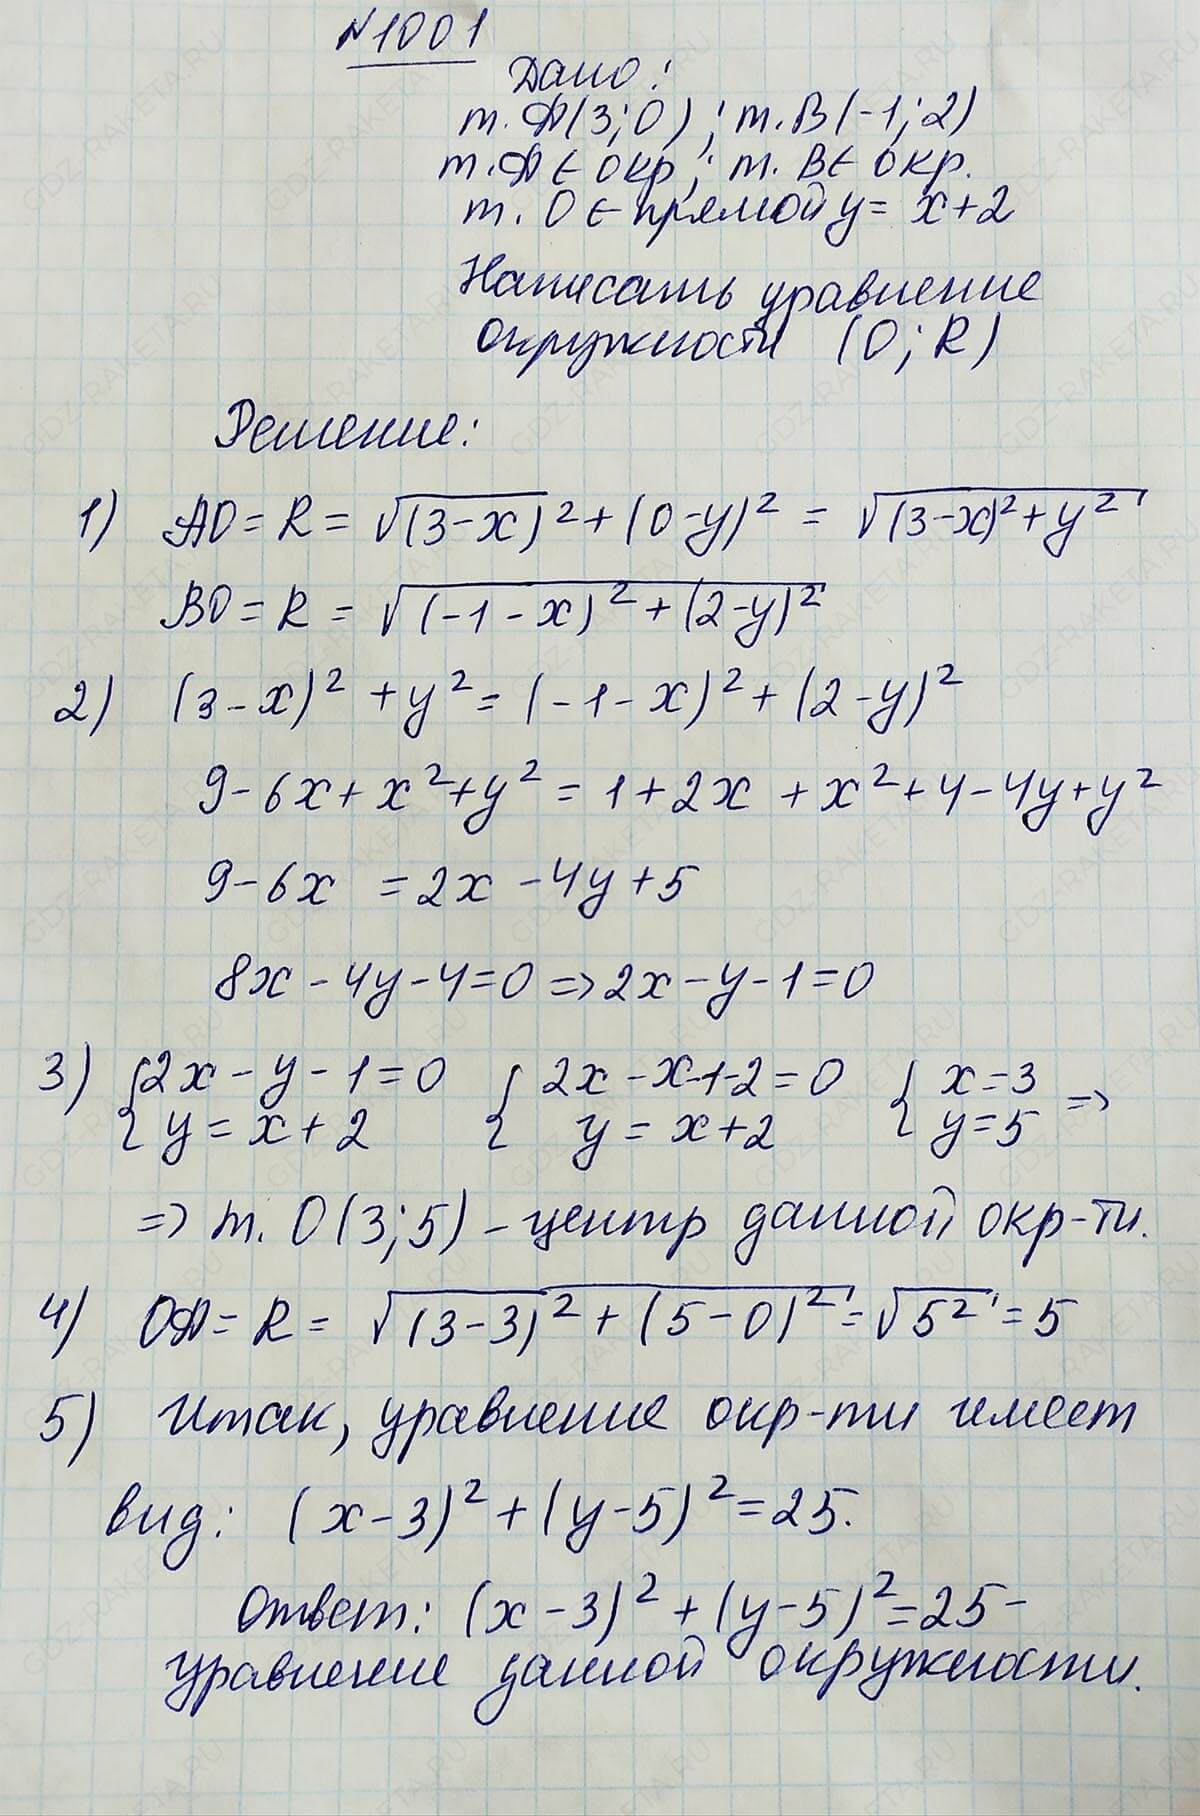 №1001
Дано:
т. A(3; 0); т. B(-1; 2)
т. A ∈ окр; т. B ∈ окр.
т. O ∈ прямой y = x + 2
Написать уравнение
окружности (O; R)
Решение:
1) AO = R = √(3-x)² + (0-y)² = √(3-x)² + y²
BO = R = √(-1-x)² + (2-y)²
2) (3-x)² + y² = (-1-x)² + (2-y)²
9 - 6x + x² + y² = 1 + 2x + x² + 4 - 4y + y²
9 - 6x = 2x - 4y + 5
8x - 4y - 4 = 0 => 2x - y - 1 = 0
3) { 2x - y - 1 = 0 { 2x - x - 1 - 2 = 0 { x = 3
y = x + 2 y = x + 2 y = 5 =>
=> т. O(3; 5) - центр данной окр-ти.
4) OA = R = √(3-3)² + (5-0)² = √5² = 5
5) Итак, уравнение окр-ти имеет
вид: (x-3)² + (y-5)² = 25.
Ответ: (x-3)² + (y-5)² = 25 -
уравнение данной окружности.
GDZ-RAKETA.RU